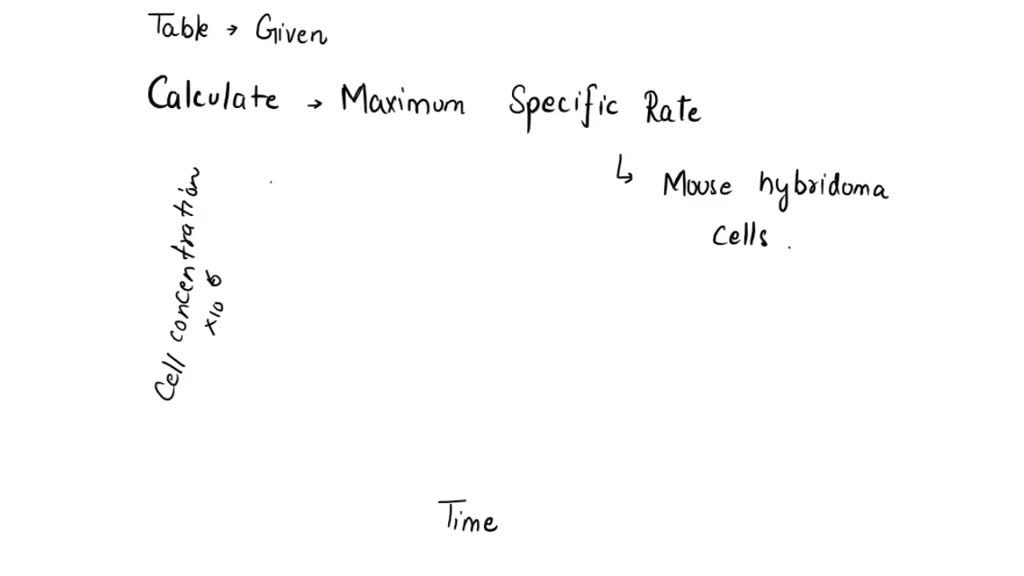 Table → Given
Calculate → Maximum Specific Rate
↳ Mouse hybridoma
cells.
Cell concentration
x10 6
Time